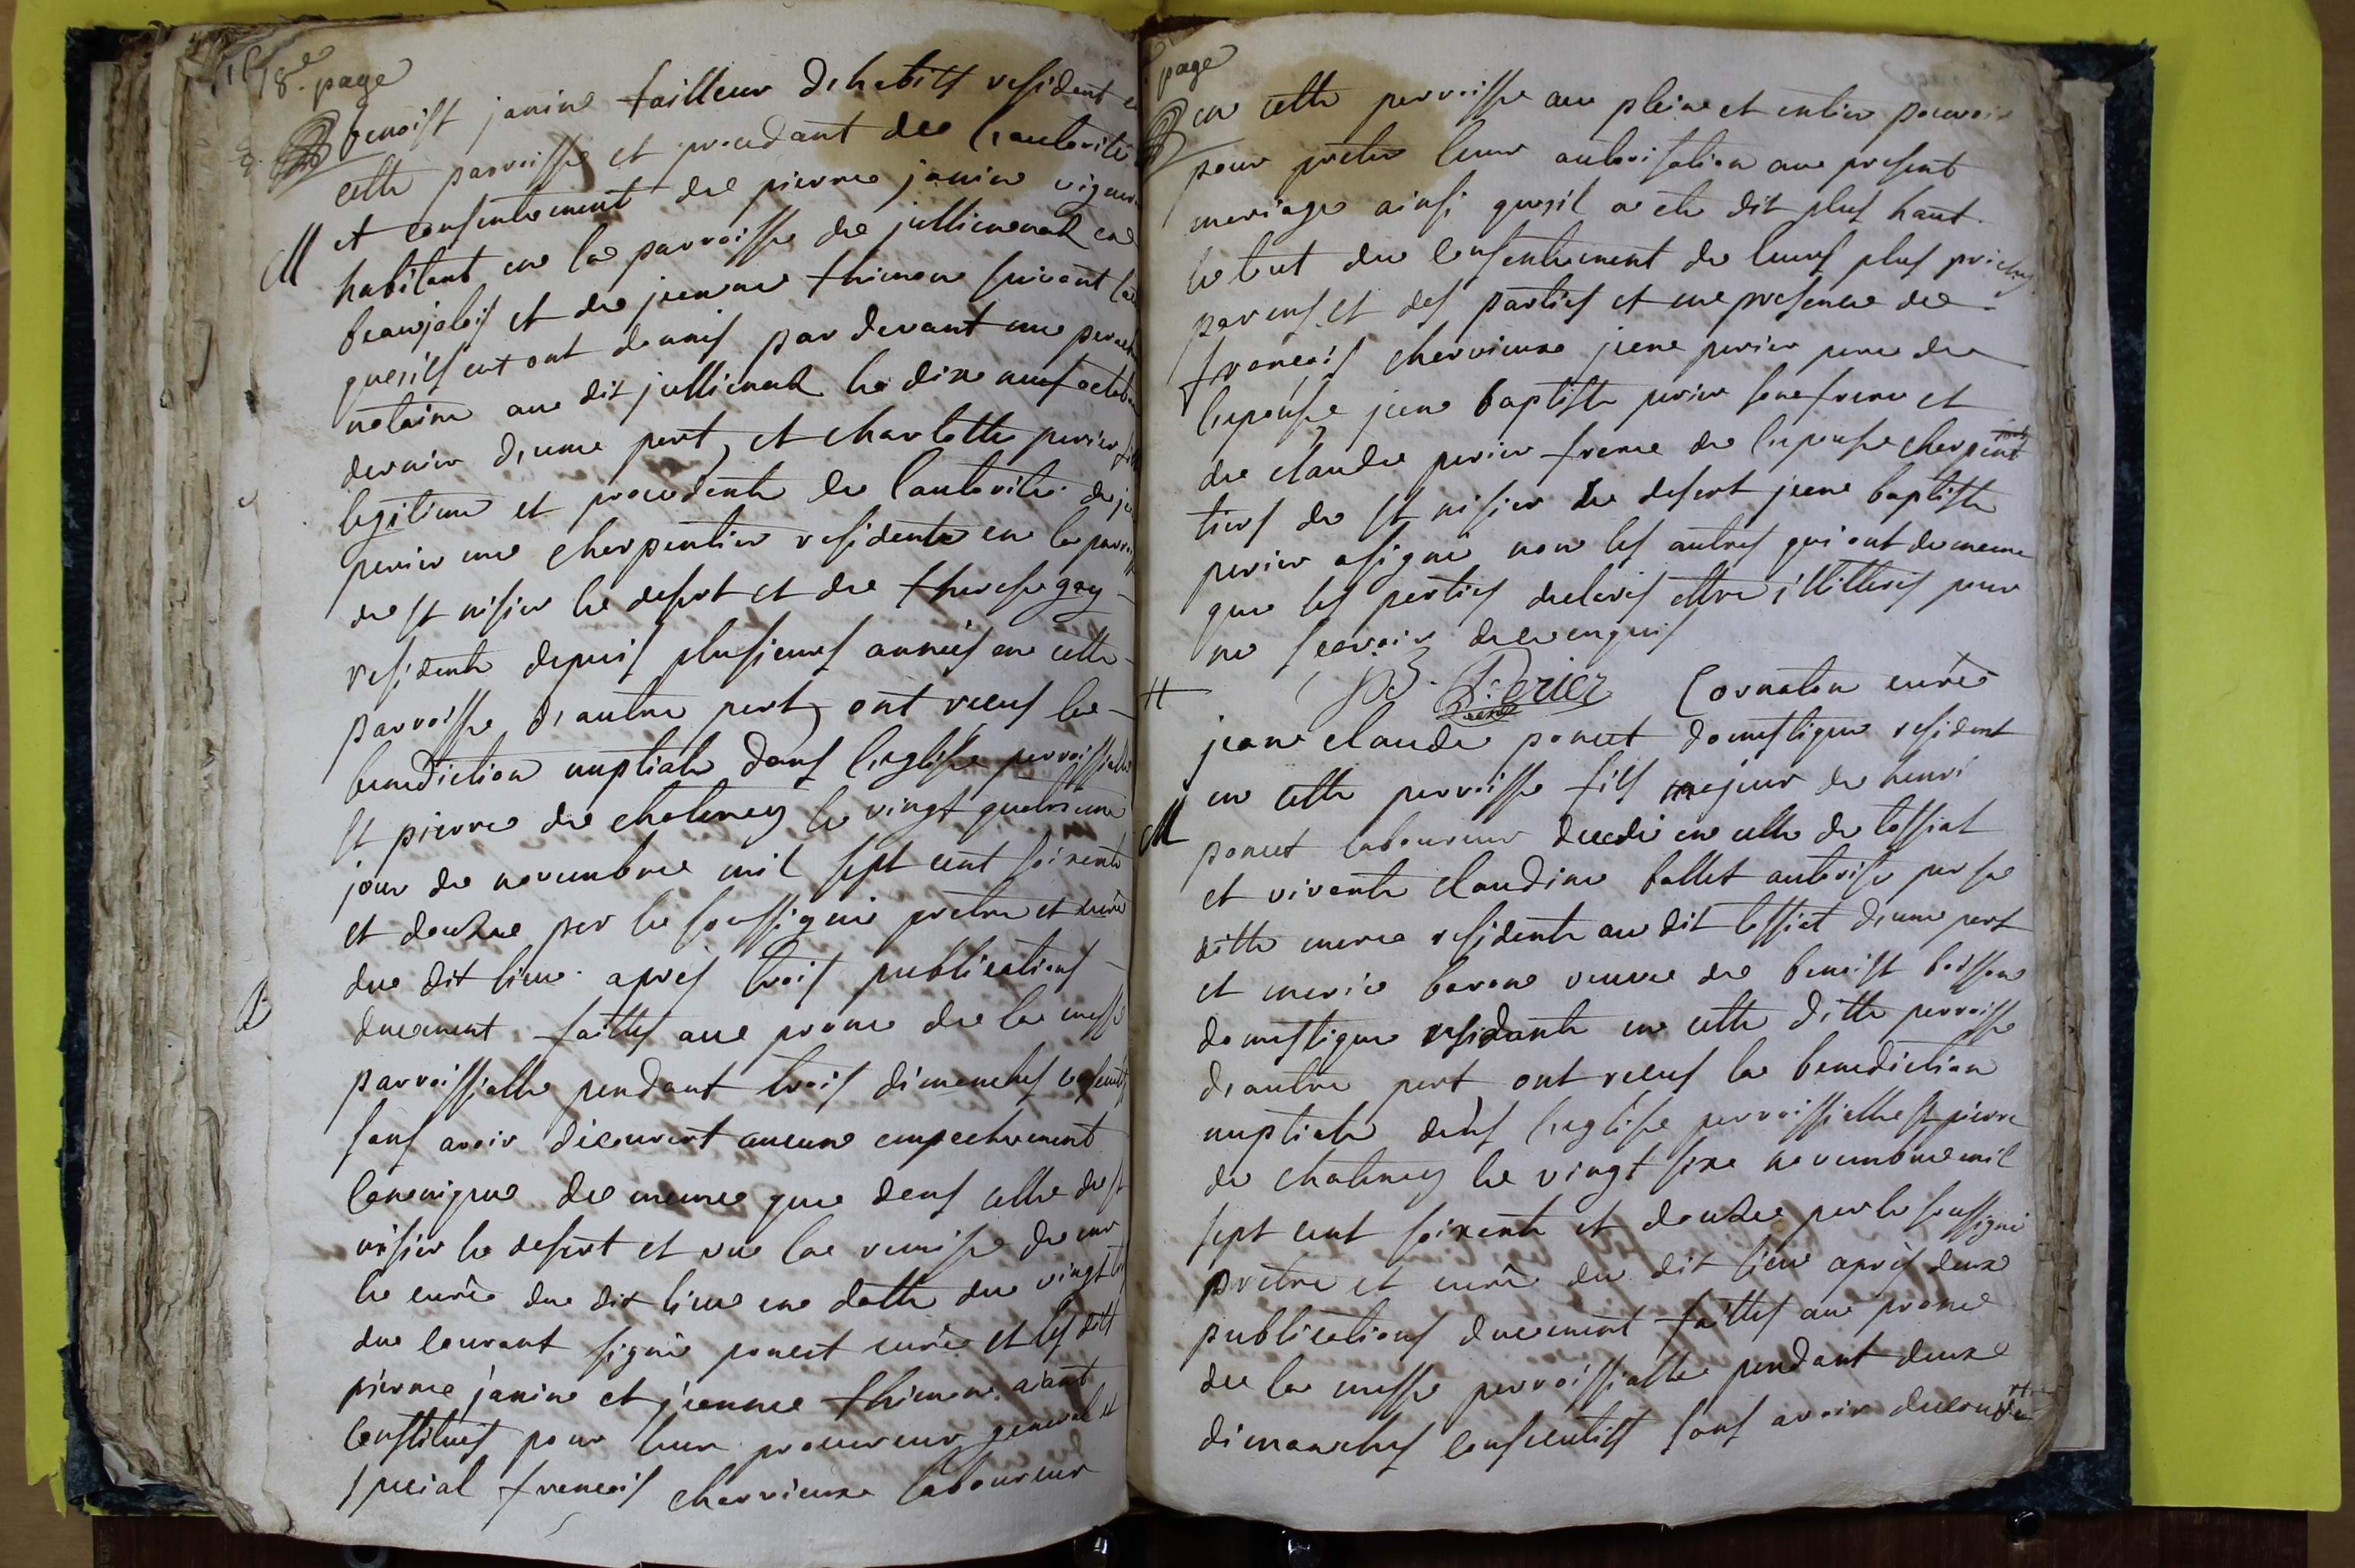 18e. page
benoist janin tailleur d'habits resident en
cette parroisse et procedant de l'autorité
M et consentement de pierre janin vigneron
habitant en la parroisse de jullienas en
beaujolois et de jeanne thimon suivant la
quesils ont donnés par devant me
notaire au dit jullienas le dix neuf octobre
dernier d'une part, et charlotte perier fille
legitime et procedente de l'autorité de jean
perier me cherpentier residente en la parroisse
de st nisier le desert et de therese gay
residente depuis plusieurs années en cette
parroisse d'autre part, ont receus la
benediction nuptiale dans l'eglise parroissialle
st pierre de chatenay le vingt quatrieme
jour de novembre mil sept cent soixente
et douze par le soussigné pretre et curé
du dit lieu. après trois publications
duement faittes au prone de la messe
parroissialle pendant trois dimenches consecutifs
sans avoir découvert aucune empechement
canonique de meme que dans celle de st
nisier le desert et vu la remise de mr
le curé du dit lieu en datte du vingt
du courant signé poncet curé et les dits
pierre janin et jeanne thimon aiant
constitués pour leur procureur general et
special francois chervieux laboureur
page
en cette parroisse au plein et entier pouvoir
pour preter leur autorisation au present
mariage ainsi quesil a eté dit plus haut.
le tout du consentement de leurs plus proches
parens et des parties et en presence de
francois chervieux jean perier pere de
l'epouse jean baptiste perier son frere et
de claude perier frere de l'epouse cherpent
tiers de st nisier le desert jean baptiste
perier asigné non les autres qui ont de meme
que les parties declarés ettre illitterés pour
ne scavoir de ce enquis
JB. Perier Cornaton curé
jean claude poncet domestique resident
en cette parroisse fils majeur de henri
M poncet laboureur decedé en celle de tossiat
et vivente claudine ballet autorisé par sa
ditte mere residente au dit tossiat d'une part
et marie baron veuve de benoist boisson
domestique residante en cette ditte parroisse
d'autre part ont receus la benediction
nuptiale dans l'eglise parroissialle st pierre
de chatenay le vingt six novembre mil
sept cent soixente et douze par le soussigné
pretre et curé du dit lieu après deux
publications duement faittes au prone
de la messe parroissialle pendant deux
dimanches consecutifs sans avoir decouvert